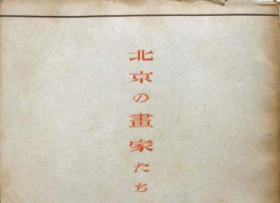 北京の畫家たち